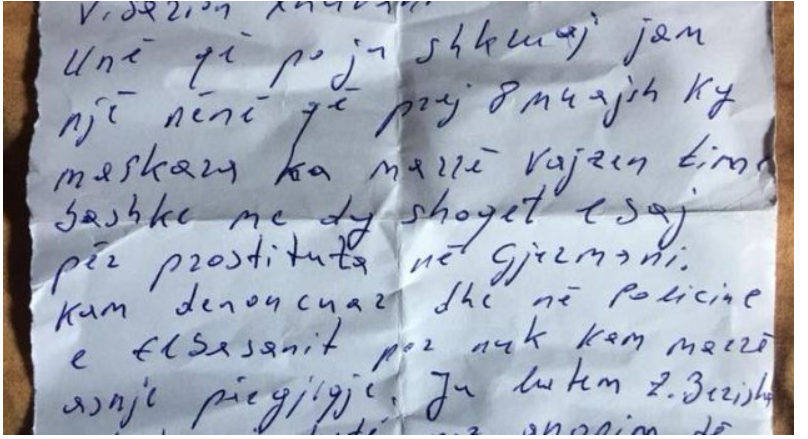 Unë që po ju shkruaj jam
një nënë që prej 8 muajsh ky
maskara ka marrë vajzen time
bashke me dy shoqet e saj
për prostituta në Gjermani.
Kam denoncuar dhe në Policine
e Elbasanit por nuk kam marrë
asnje përgjigje. Ju lutem Z. Berisha